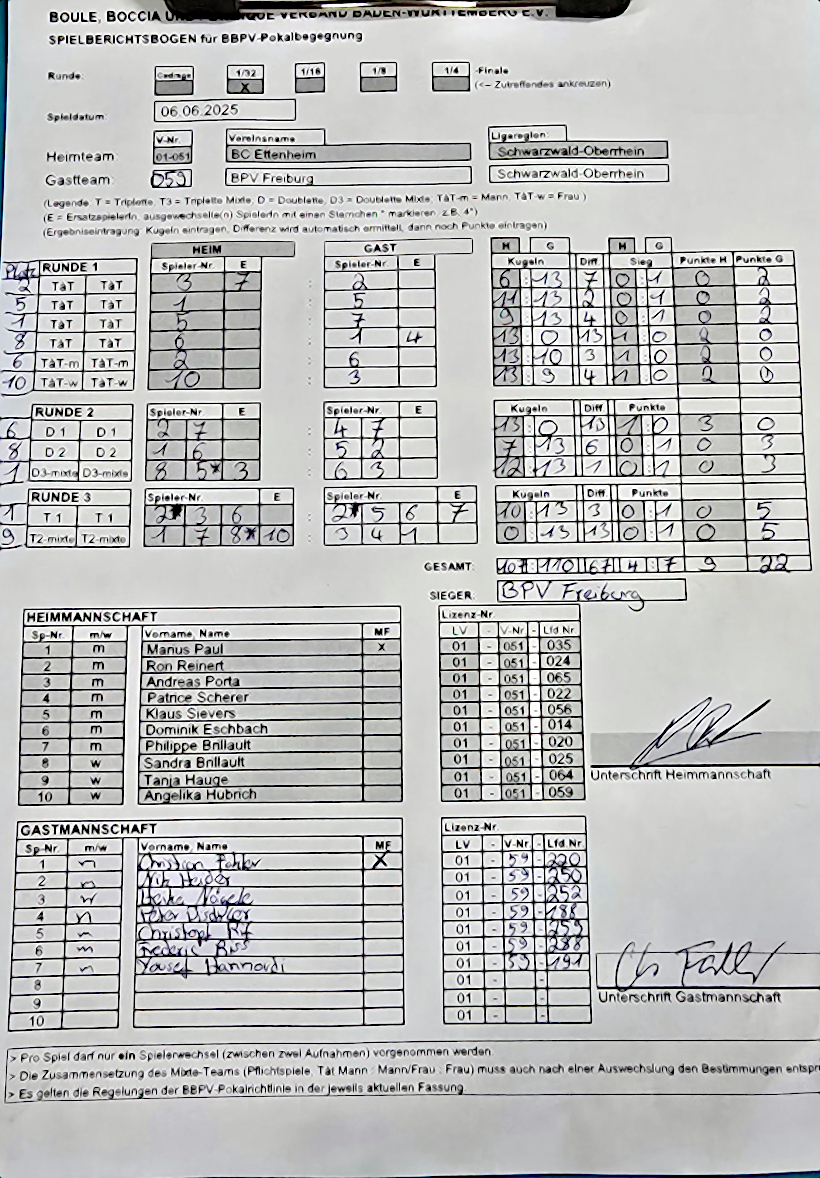 BOULE, BOCCIA UND PETANQUE VERBAND BADEN-WÜRTTEMBERG E.V.
SPIELBERICHTSBOGEN für BBPV-Pokalbegegnung
Runde: Cadrage 1/32 1/16 1/8 1/4 -Finale
X (<-- Zutreffendes ankreuzen)
Spieldatum: 06.06.2025
V-Nr. Vereinsname Ligaregion:
Heimteam: 01-051 BC Ettenheim Schwarzwald-Oberrhein
Gastteam: 059 BPV Freiburg Schwarzwald-Oberrhein
(Legende, T = Triplette, T3 = Triplette Mixte, D = Doublette, D3 = Doublette Mixte, TàT-m = Mann, TàT-w = Frau )
(E = ErsatzspielerIn, ausgewechselte(n) SpielerIn mit einen Sternchen * markieren, z.B. 4*)
(Ergebniseintragung: Kugeln eintragen, Differenz wird automatisch ermittelt, dann noch Punkte eintragen)
HEIM GAST H G H G
Platz RUNDE 1 Spieler-Nr. E Spieler-Nr. E Kugeln Diff. Sieg Punkte H Punkte G
2 TàT TàT 3 7 : 2 6 : 13 7 0 : 1 0 2
5 TàT TàT 1 : 5 11 : 13 2 0 : 1 0 2
1 TàT TàT 5 : 7 9 : 13 4 0 : 1 0 2
8 TàT TàT 6 : 1 4 13 : 0 13 1 : 0 2 0
6 TàT-m TàT-m 2 : 6 13 : 10 3 1 : 0 2 0
10 TàT-w TàT-w 10 : 3 13 : 9 4 1 : 0 2 0
RUNDE 2 Spieler-Nr E Spieler-Nr. E Kugeln Diff Punkte
6 D 1 D 1 2 7 : 4 7 13 : 0 13 1 : 0 3 0
8 D 2 D 2 1 6 : 5 2 7 : 13 6 0 : 1 0 3
1 D3-mixte D3-mixte 8 5* 3 : 6 3 12 : 13 1 0 : 1 0 3
RUNDE 3 Spieler-Nr. E Spieler-Nr. E Kugeln Diff Punkte
1 T 1 T 1 2* 3 6 : 2* 5 6 7 10 : 13 3 0 : 1 0 5
9 T2-mixte T2-mixte 1 7 8* 10 : 3 4 1 0 : 13 13 0 : 1 0 5
GESAMT: 107 : 110 67 4 : 7 9 22
SIEGER: BPV Freiburg
HEIMMANNSCHAFT Lizenz-Nr.
Sp-Nr. m/w Vorname, Name MF LV - V-Nr - Lfd Nr
1 m Marius Paul x 01 - 051 - 035
2 m Ron Reinert 01 - 051 - 024
3 m Andreas Porta 01 - 051 - 065
4 m Patrice Scherer 01 - 051 - 022
5 m Klaus Sievers 01 - 051 - 056
6 m Dominik Eschbach 01 - 051 - 014
7 m Philippe Brillault 01 - 051 - 020
8 w Sandra Brillault 01 - 051 - 025
9 w Tanja Hauge 01 - 051 - 064
10 w Angelika Hubrich 01 - 051 - 059
Unterschrift Heimmannschaft
GASTMANNSCHAFT Lizenz-Nr.
Sp-Nr. m/w Vorname, Name MF LV - V-Nr. - Lfd.Nr.
1 m Christian X 01 - 59 - 220
2 m Heider 01 - 59 - 250
3 w Heike Nägele 01 - 59 - 252
4 m Peter 01 - 59 - 188
5 m Christoph 01 - 59 - 259
6 m Frederic 01 - 59 - 288
7 m Yousef Hammoudi 01 - 59 - 191
8 01 - -
9 01 - -
10 01 - -
Unterschrift Gastmannschaft
> Pro Spiel darf nur ein Spielerwechsel (zwischen zwei Aufnahmen) vorgenommen werden.
> Die Zusammensetzung des Mixte-Teams (Pflichtspiele, Tàt Mann : Mann/Frau : Frau) muss auch nach einer Auswechslung den Bestimmungen entspr
> Es gelten die Regelungen der BBPV-Pokalrichtlinie in der jeweils aktuellen Fassung.